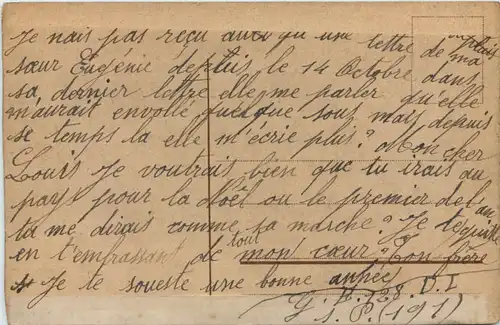 Je nais pas reçu aucu qu une lettre de ma
sœur Eugénie depluis le 14 Octobre dans
sa dernier lettre elle me parler qu'elle
m'aurait envollé quelque sous mais depuis
se temps la elle m'écrie plus? Mon cher
Louis Je voutrais bien que tu irais au
pays pour la Noël ou le premier del'an
ta me dirais comme sa marche? Je te quitte
en t'embrassant de tout mon cœur? Ton frère
Je te soueste une bonne année
D.I
S.P. (191)